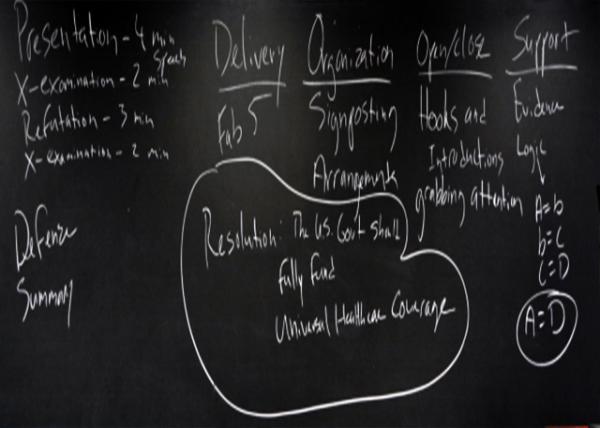 Presentation - 4 min
Speech
X-examination - 2 min
Refutation - 3 min
X-examination - 2 min
Defense
Summary
Delivery
Fab 5
Organization
Signposting
Arrangements
Open/close
Hooks and
Introductions
grabbing attention
Support
Evidence
Logic
A=b
b=C
C=D
A=D
Resolution: The U.S. Gov't shall
fully fund
Universal Healthcare Coverage